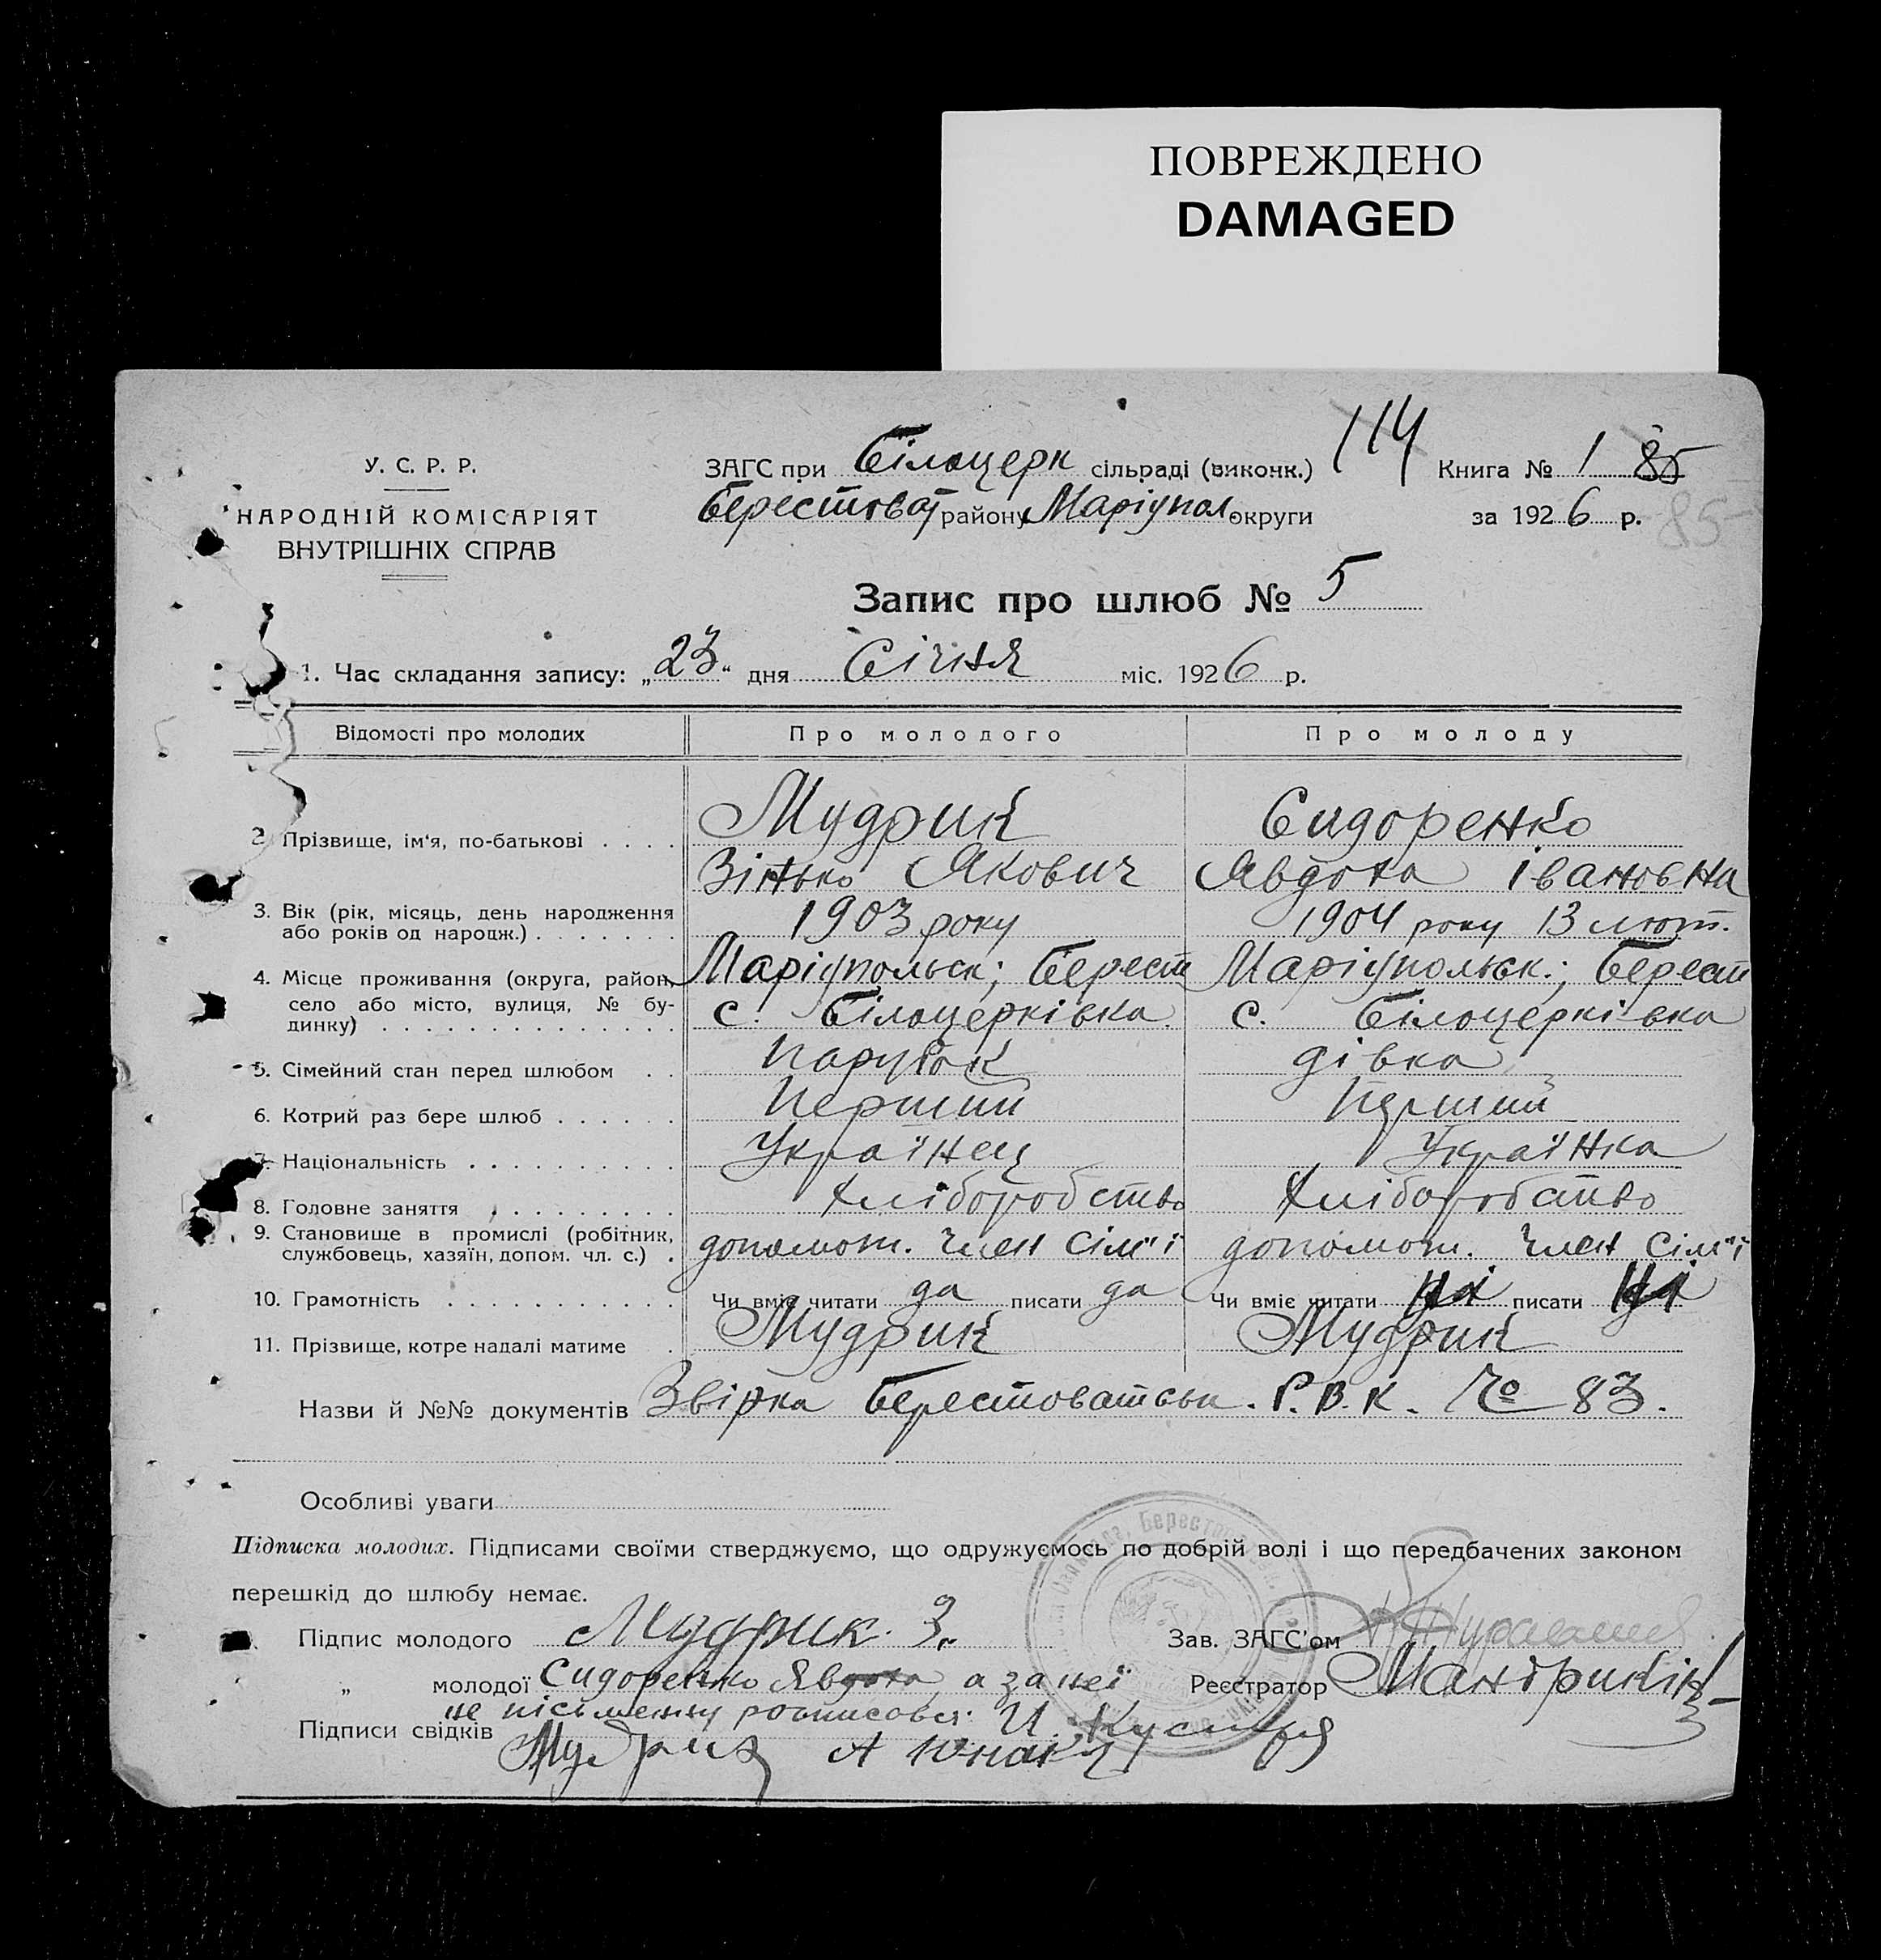 ПОВРЕЖДЕНО
DAMAGED
У. С. Р. Р.
НАРОДНІЙ КОМІСАРІЯТ
ВНУТРІШНІХ СПРАВ
ЗАГС при Білоцерк сільраді (виконк.) 114 Книга № 1 85
Берестоват району Маріупол. округи за 1926 р. 85
Запис про шлюб № 5
1. Час складання запису: „23“ дня Січня міс. 1926 р.
Відомості про молодих Про молодого Про молоду
Мудрик Сидоренко
2. Прізвище, ім‘я, по-батькові . . . .
Зінько Якович Явдоха Івановна
3. Вік (рік, місяць, день народження
або років од народж.) . . . . . . . 1903 року 1904 року 13 лют.
4. Місце проживання (округа, район, Маріупольск; Берест Маріупольск.; Берест
село або місто, вулиця, № бу-
динку) . . . . . . . . . . . . . . с. Білоцерківка с. Білоцерківка
5. Сімейний стан перед шлюбом . . парубок дівка
6. Котрий раз бере шлюб . . . . . . Перший Перший
7. Національність . . . . . . . . . . Українец Українка
8. Головне заняття . . . . . . . . . Хліборобство Хліборобство
9. Становище в промислі (робітник,
службовець, хазяїн, допом. чл. с.) . допомот. член сім"ї допомот. член сім"ї
10. Грамотність . . . . . . . . . . . Чи вміє читати да писати да Чи вміє читати ні писати ні
11. Прізвище, котре надалі матиме . Мудрик Мудрик
Назви й №№ документів Звірка Берестоватськ. Р.В.К. № 83.
Особливі уваги
Підписка молодих. Підписами своїми стверджуємо, що одружуємось по добрій волі і що передбачених законом
перешкід до шлюбу немає.
Підпис молодого Мудрик З. Зав. ЗАГС’ом
„ молодої Сидоренко Явдоха а за неї Реєстратор
не письменну росписовся И.
Підписи свідків Мудрик А Юнак